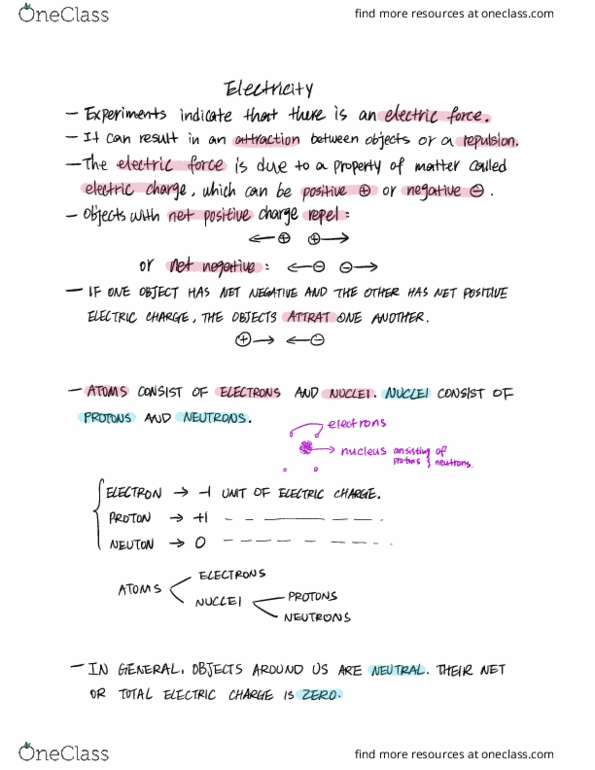 OneClass
find more resources at oneclass.com
Electricity
— Experiments indicate that there is an electric force.
— It can result in an attraction between objects or a repulsion.
— The electric force is due to a property of matter called
electric charge, which can be positive ⊕ or negative ⊖.
— Objects with net positive charge repel:
←⊕ ⊕→
or net negative: ←⊖ ⊖→
— IF ONE OBJECT HAS NET NEGATIVE AND THE OTHER HAS NET POSITIVE
ELECTRIC CHARGE, THE OBJECTS ATTRAT ONE ANOTHER.
⊕→ ←⊖
— ATOMS CONSIST OF ELECTRONS AND NUCLEI. NUCLEI CONSIST OF
PROTONS AND NEUTRONS.
electrons
nucleus consisting of
protons & neutrons.
ELECTRON → -1 UNIT OF ELECTRIC CHARGE.
PROTON → +1 — — — — — —
NEUTON → 0 — — — — — —
ELECTRONS
ATOMS
NUCLEI
PROTONS
NEUTRONS
— IN GENERAL, OBJECTS AROUND US ARE NEUTRAL. THEIR NET
OR TOTAL ELECTRIC CHARGE IS ZERO.
OneClass
find more resources at oneclass.com